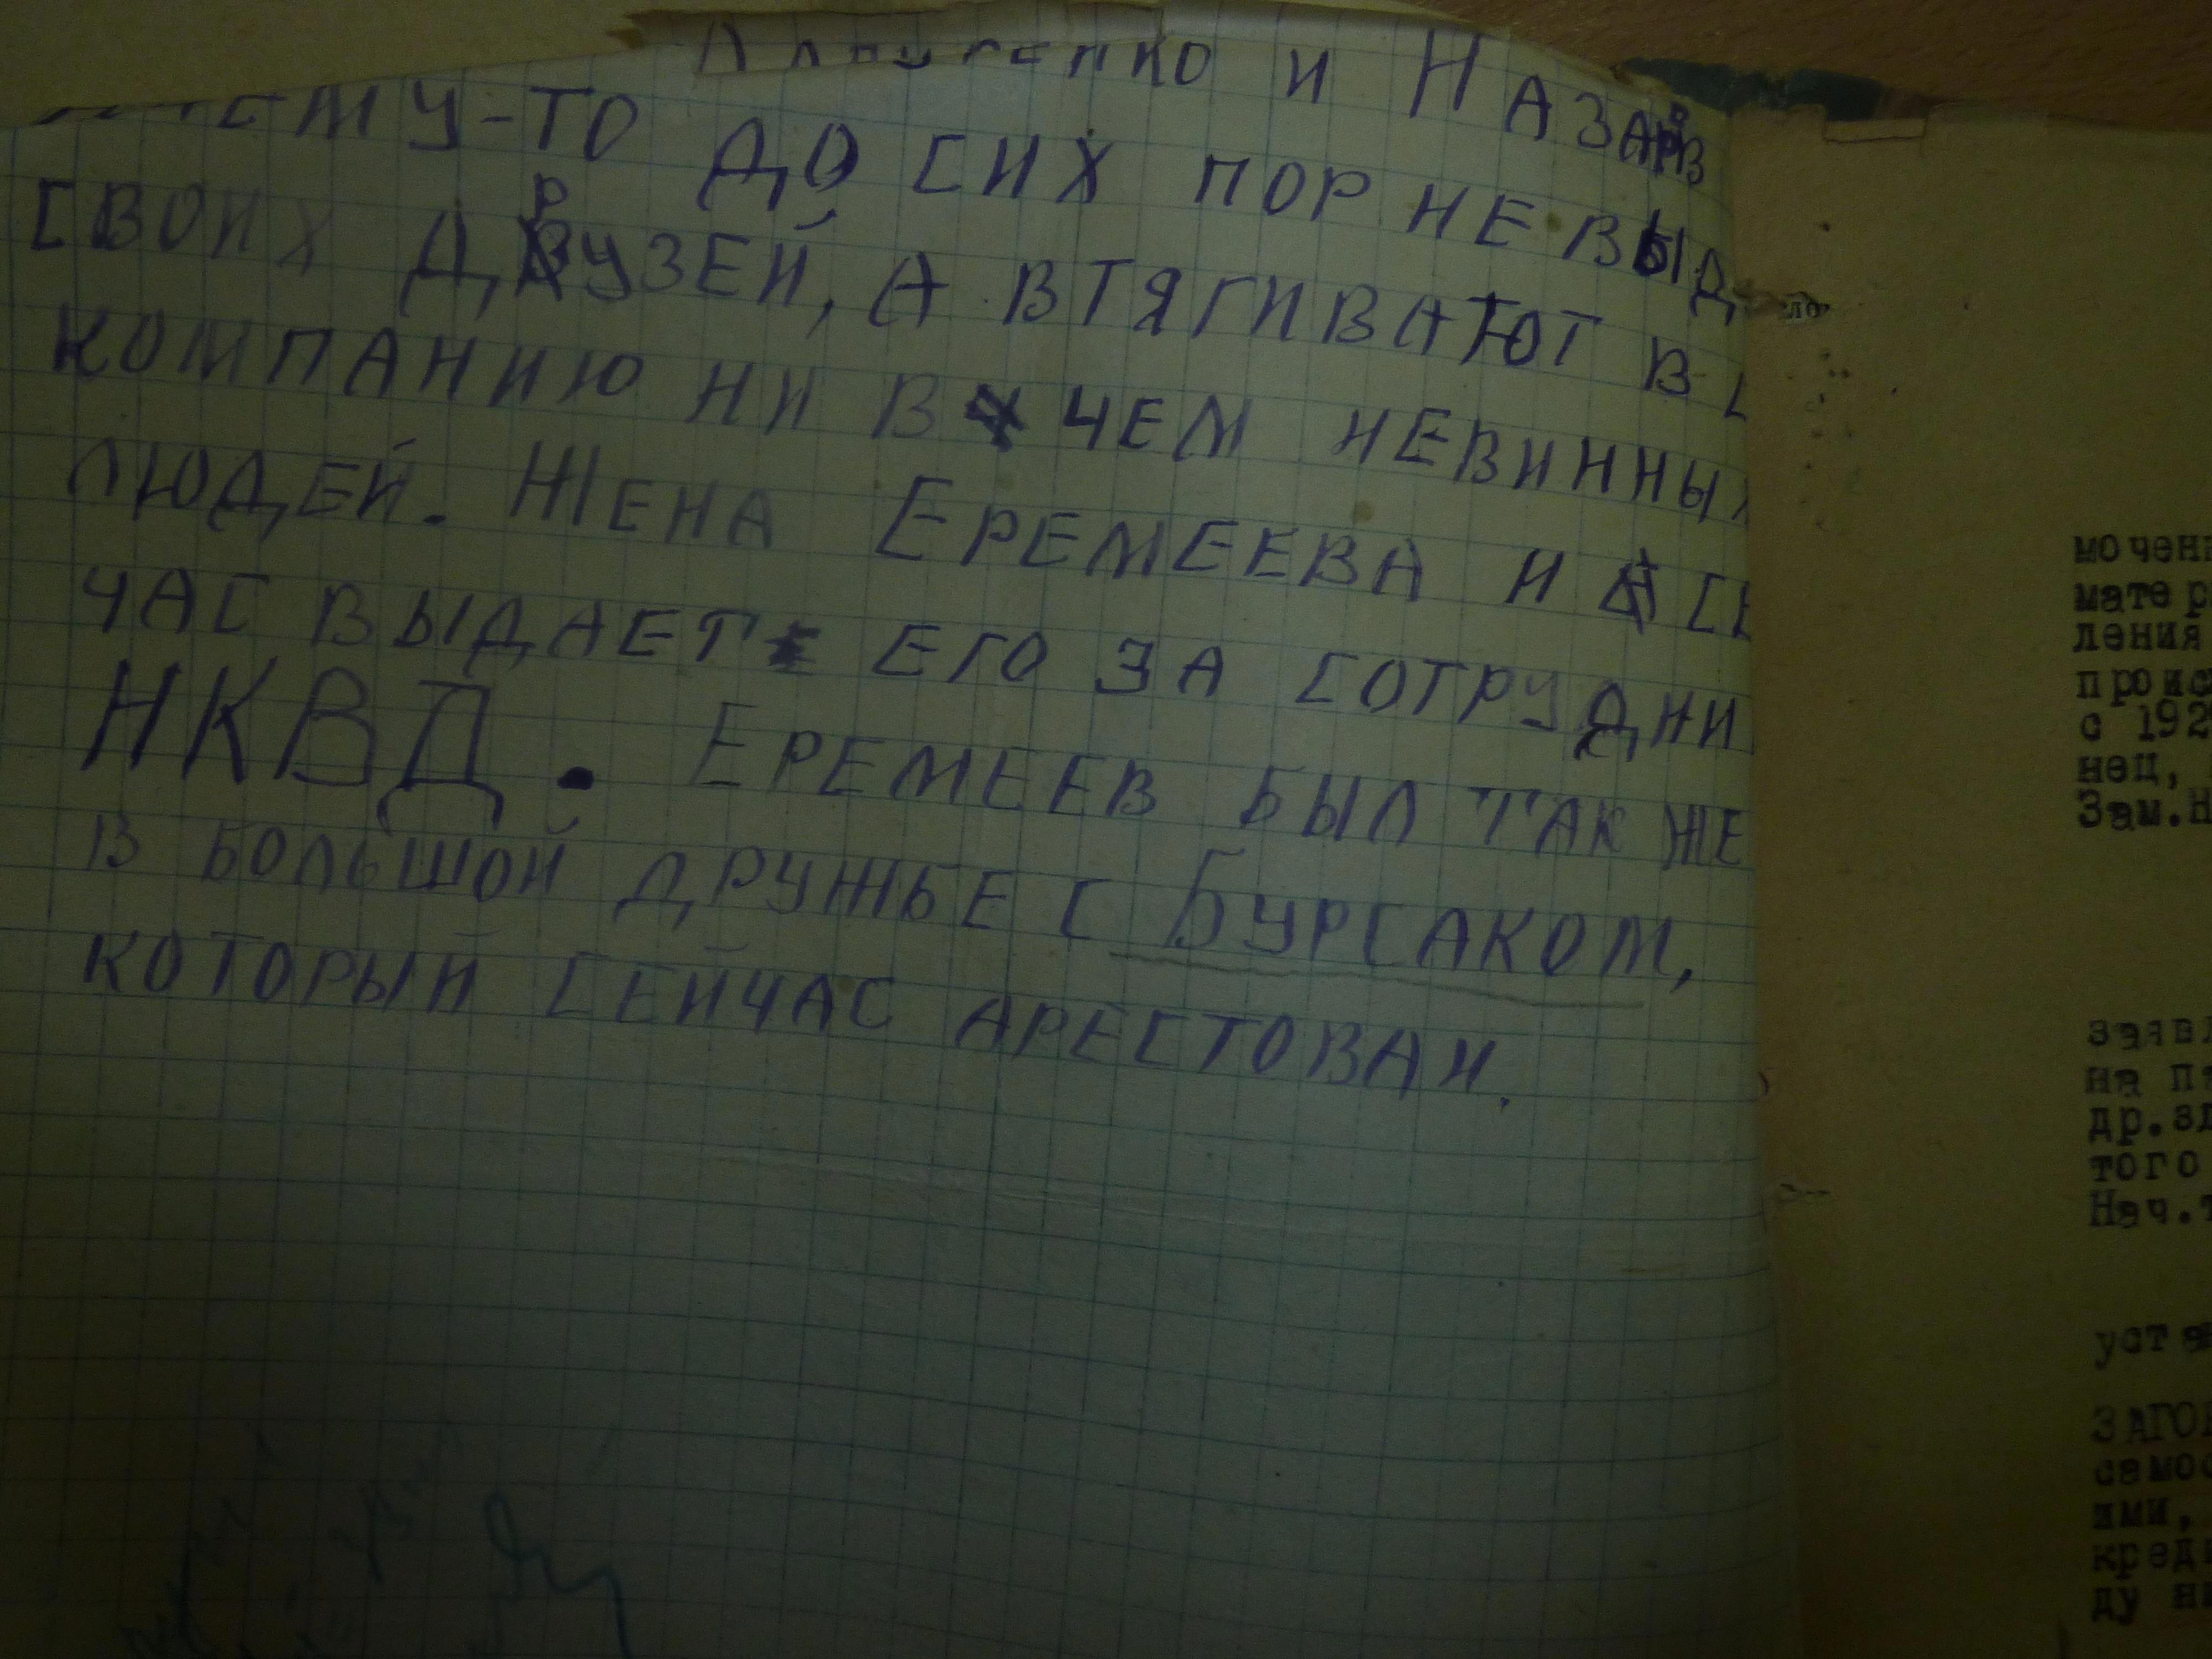 и Назаров
-то до сих пор не выд
своих друзей, а втягивают в
компанию ни в чем невинных
людей. Жена Еремеева и се
час выдает его за сотрудни
НКВД. Еремеев был так же
в большой дружбе с Бурсаком,
который сейчас арестован.
ло
мочен
матер
ления
проис
с 192
нец,
Зам.Н
заявл
на п
др.зд
того
Нач.т
уста
ЗАГО
само
ими,
кред
ду н